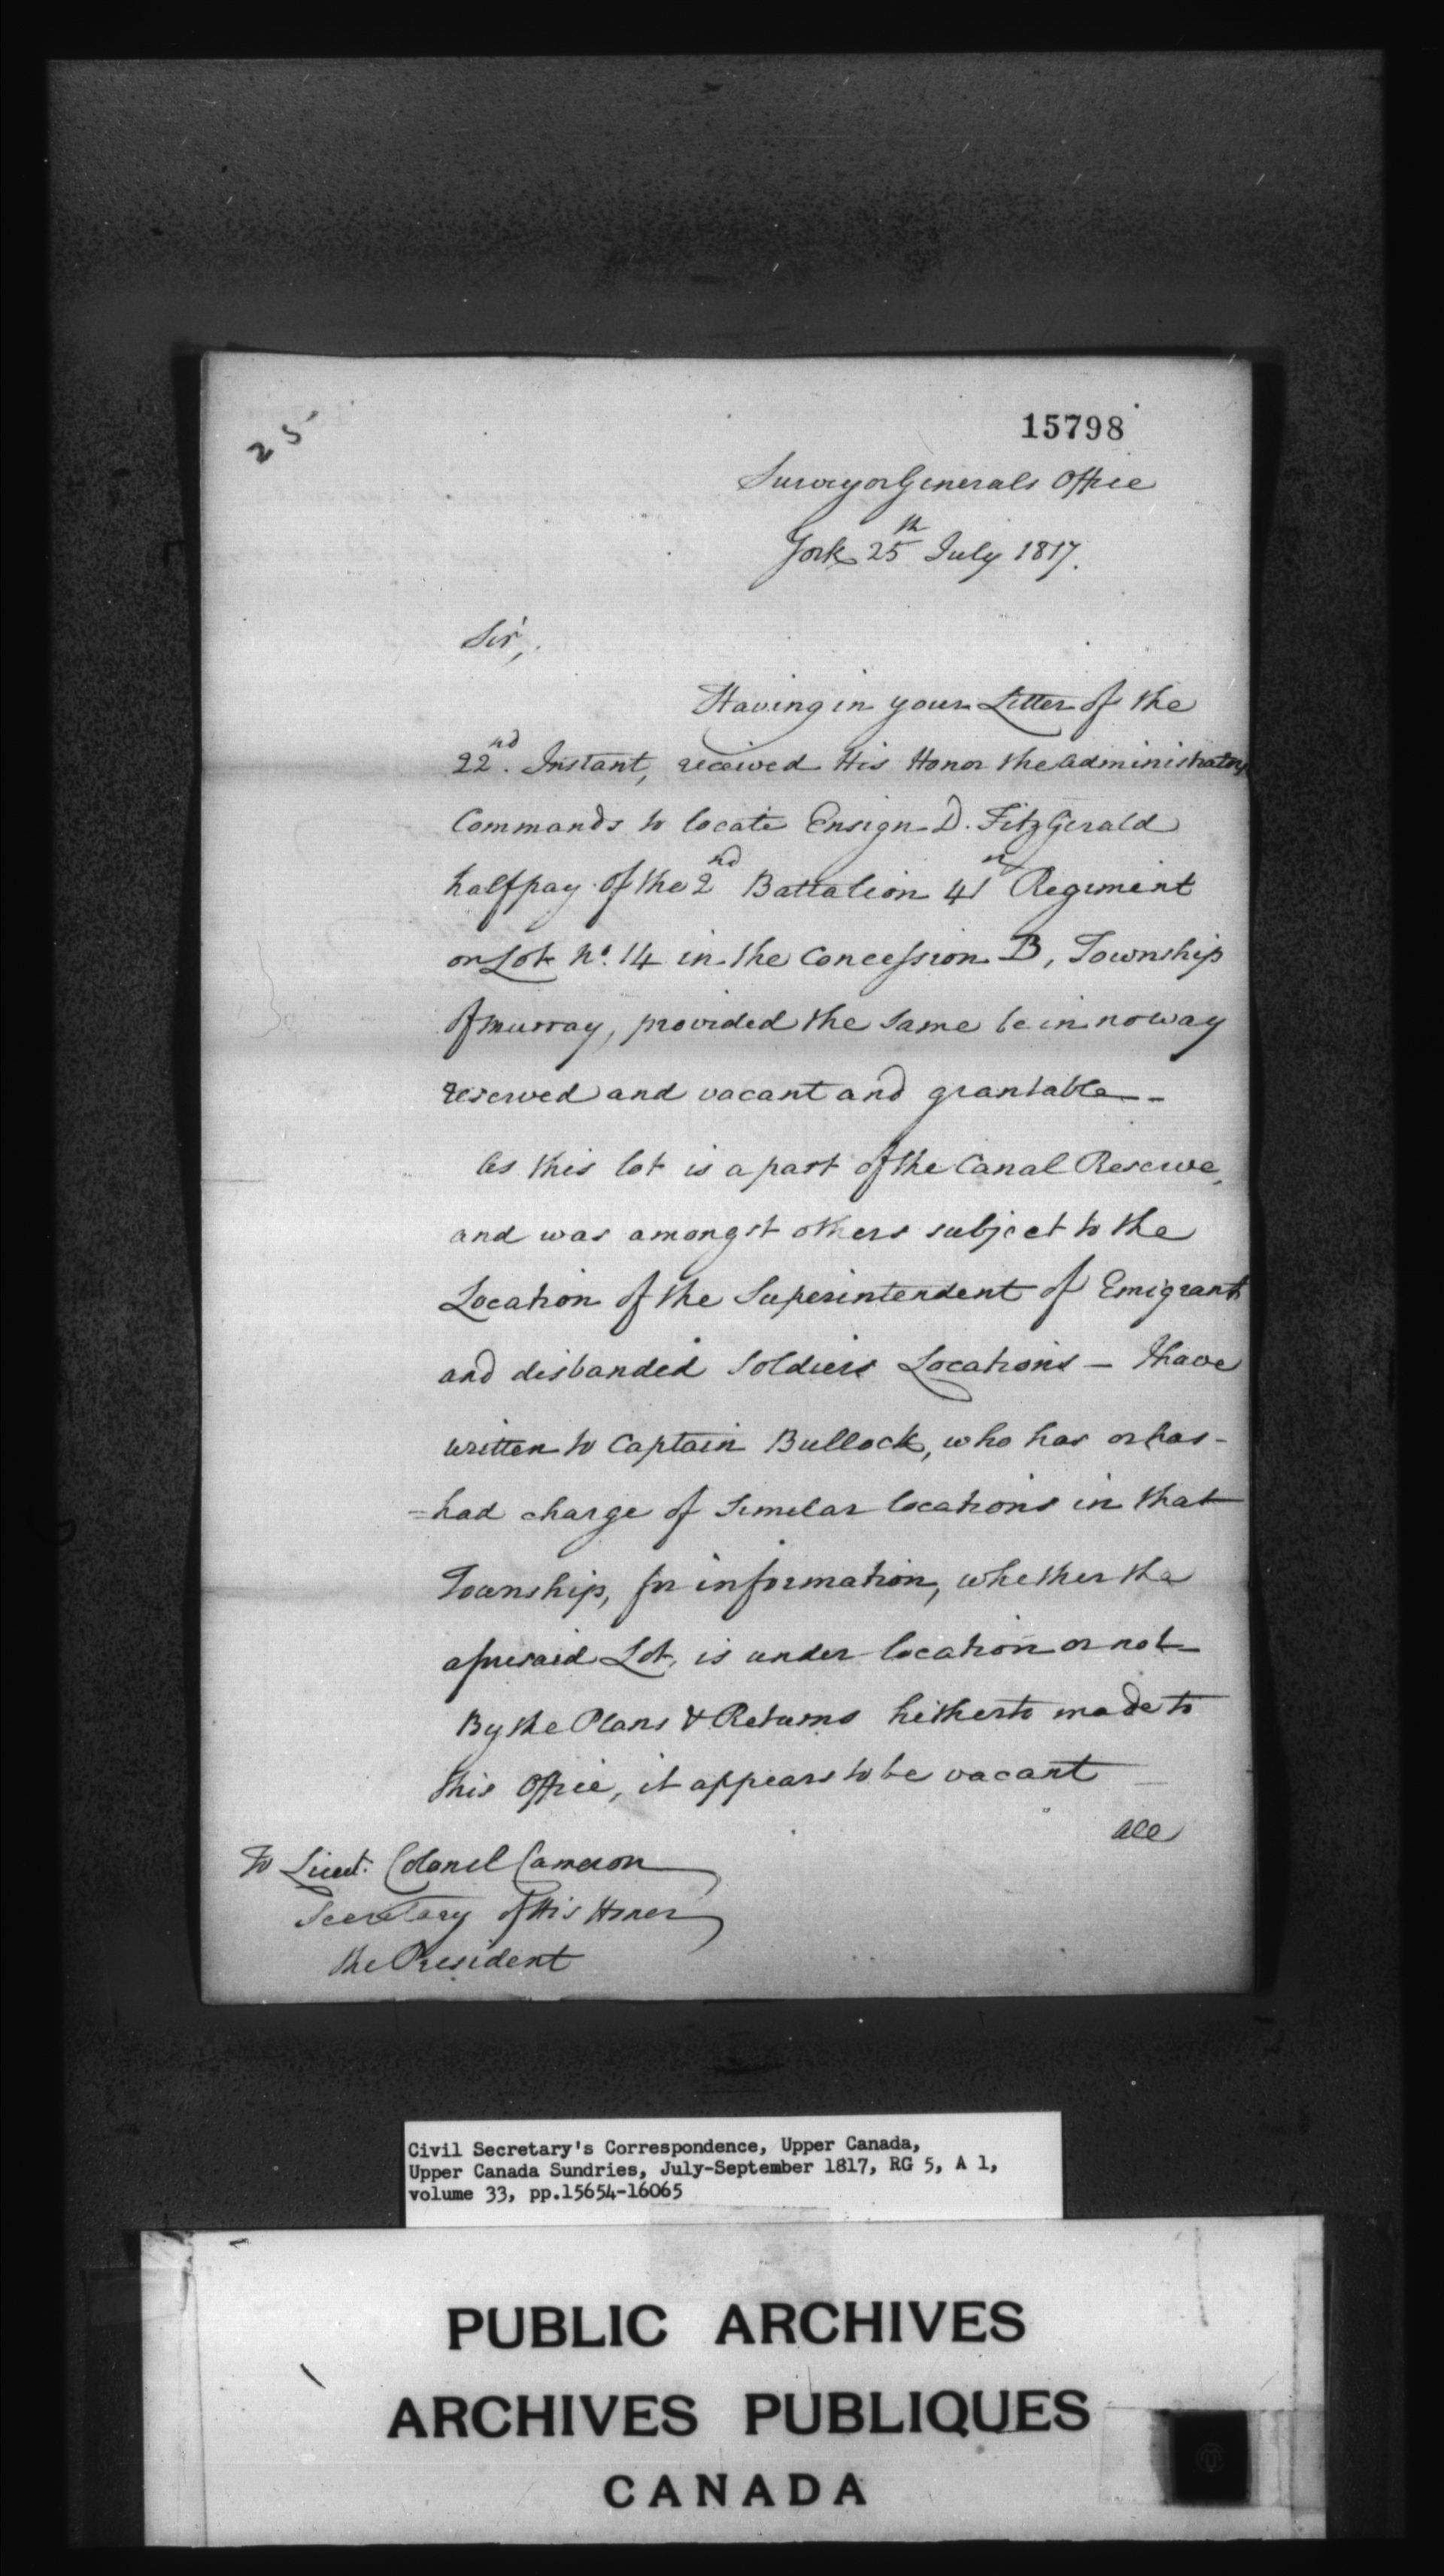 25
15798
Surveyor Generals Office
York 25th July 1817.
Sir,
Having in your Letter of the
22nd. Instant, received His Honor the Administrators
Commands to locate Ensign D. FitzGerald
halfpay of the 2nd Battalion 41st Regiment
on Lot No. 14 in the Concession B, Township
of Murray, provided the same be in no way
reserved and vacant and grantable -
As this lot is a part of the Canal Reserve,
and was amongst others subject to the
Location of the Superintendent of Emigrants
and disbanded Soldiers Locations — I have
written to Captain Bullock, who has or has-
=had charge of Similar locations in that
Township, for information, whether the
aforesaid Lot, is under location or not
By the Plans & Returns hitherto made to
this Office, it appears to be vacant —
All
To Lieut. Colonel Cameron
Secretary of His Honor
the President
Civil Secretary's Correspondence, Upper Canada,
Upper Canada Sundries, July-September 1817, RG 5, A 1,
volume 33, pp.15654-16065
PUBLIC ARCHIVES
ARCHIVES PUBLIQUES
CANADA